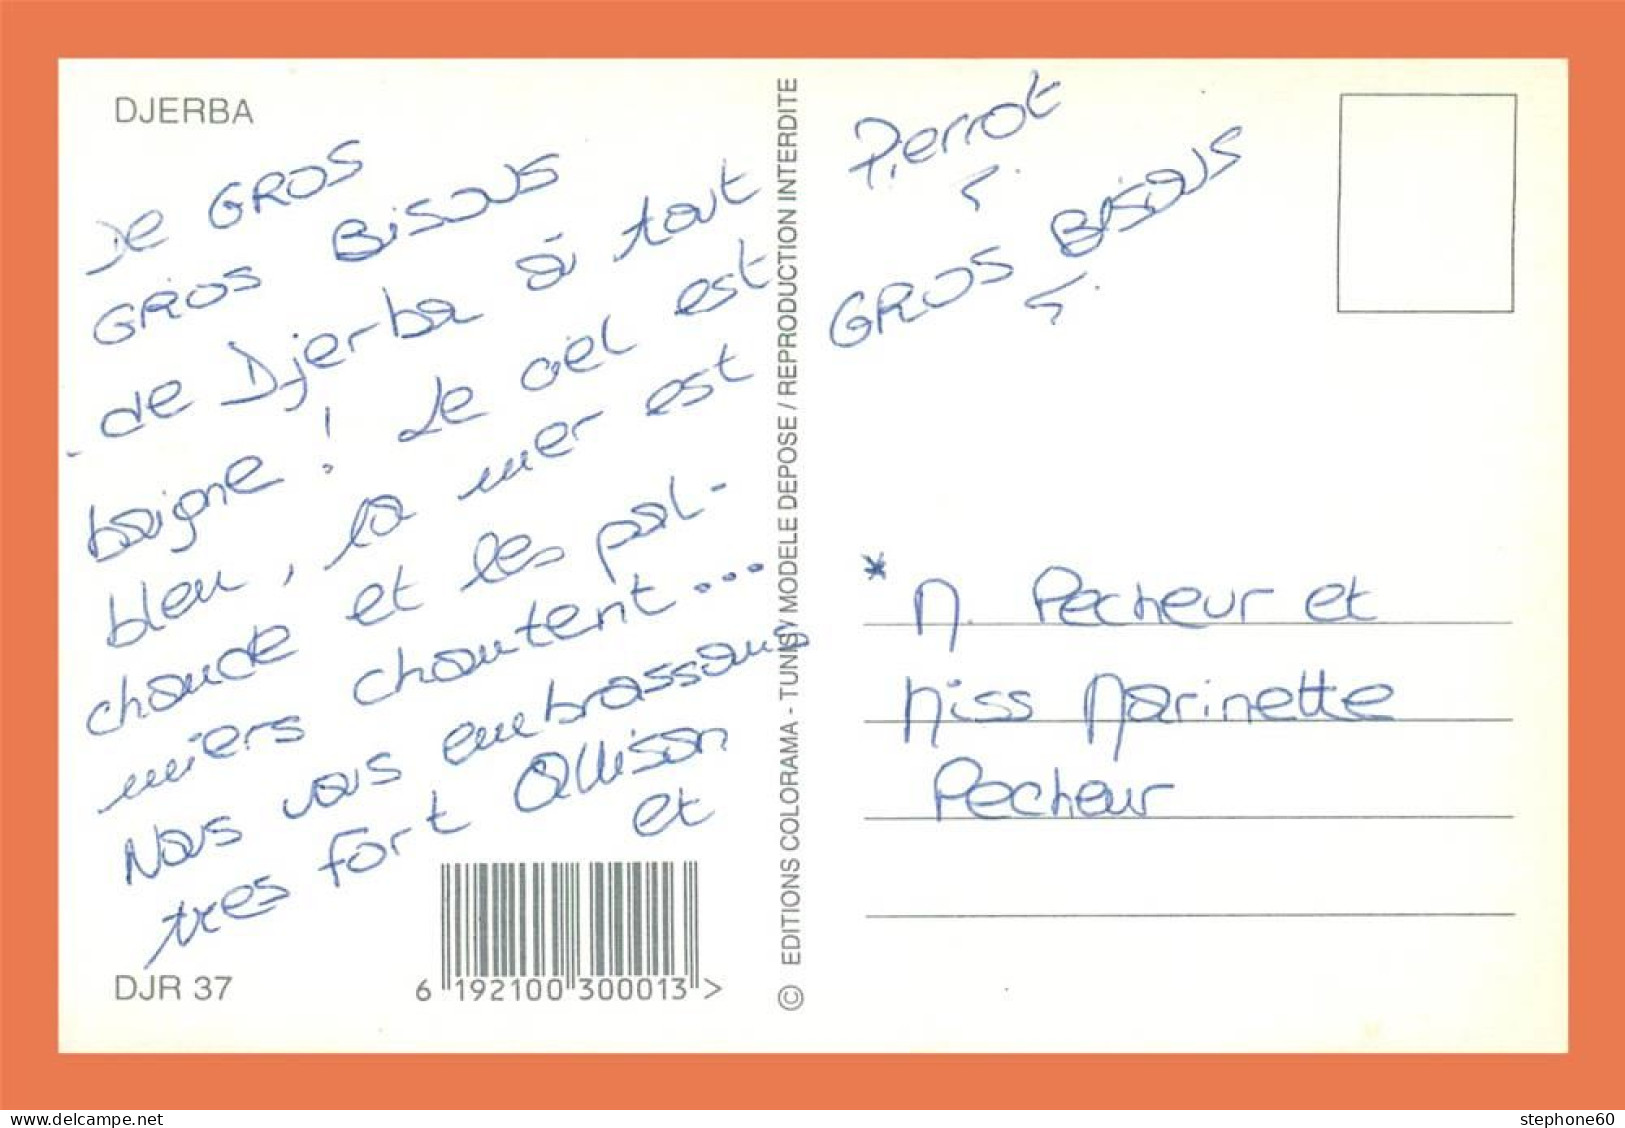 DJERBA
De GROS
GROS BISOUS
de Djerba à tout
baigne ! Le ciel est
bleu, la mer est
chaude et les pal-
miers chantent...
Nous vous embrassons
tres fort Allison
et
DJR 37
6 192100 300013 >
© EDITIONS COLORAMA - TUNIS / MODELE DEPOSE / REPRODUCTION INTERDITE
Pierrot
GROS BISOUS
* M. Pecheur et
Miss Marinette
Pecheur
www.delcampe.net
stephone60